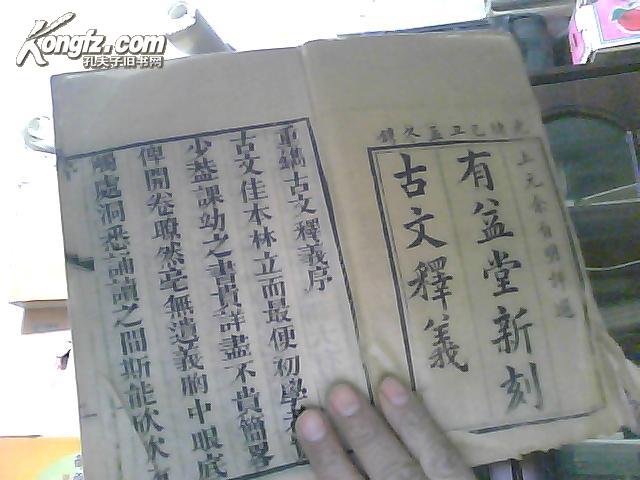 Kongfz.com
孔夫子旧书网
光緒己丑孟冬鐫
上元余自明評選
有益堂新刻
古文釋義
重鐫古文釋義序
古文佳本林立而最便初學者
少蓋課幼之書貴詳盡不貴簡畧
俾開卷瞭然毫無遺義胸中眼底
處洞悉誦讀之間斯能欣欣有